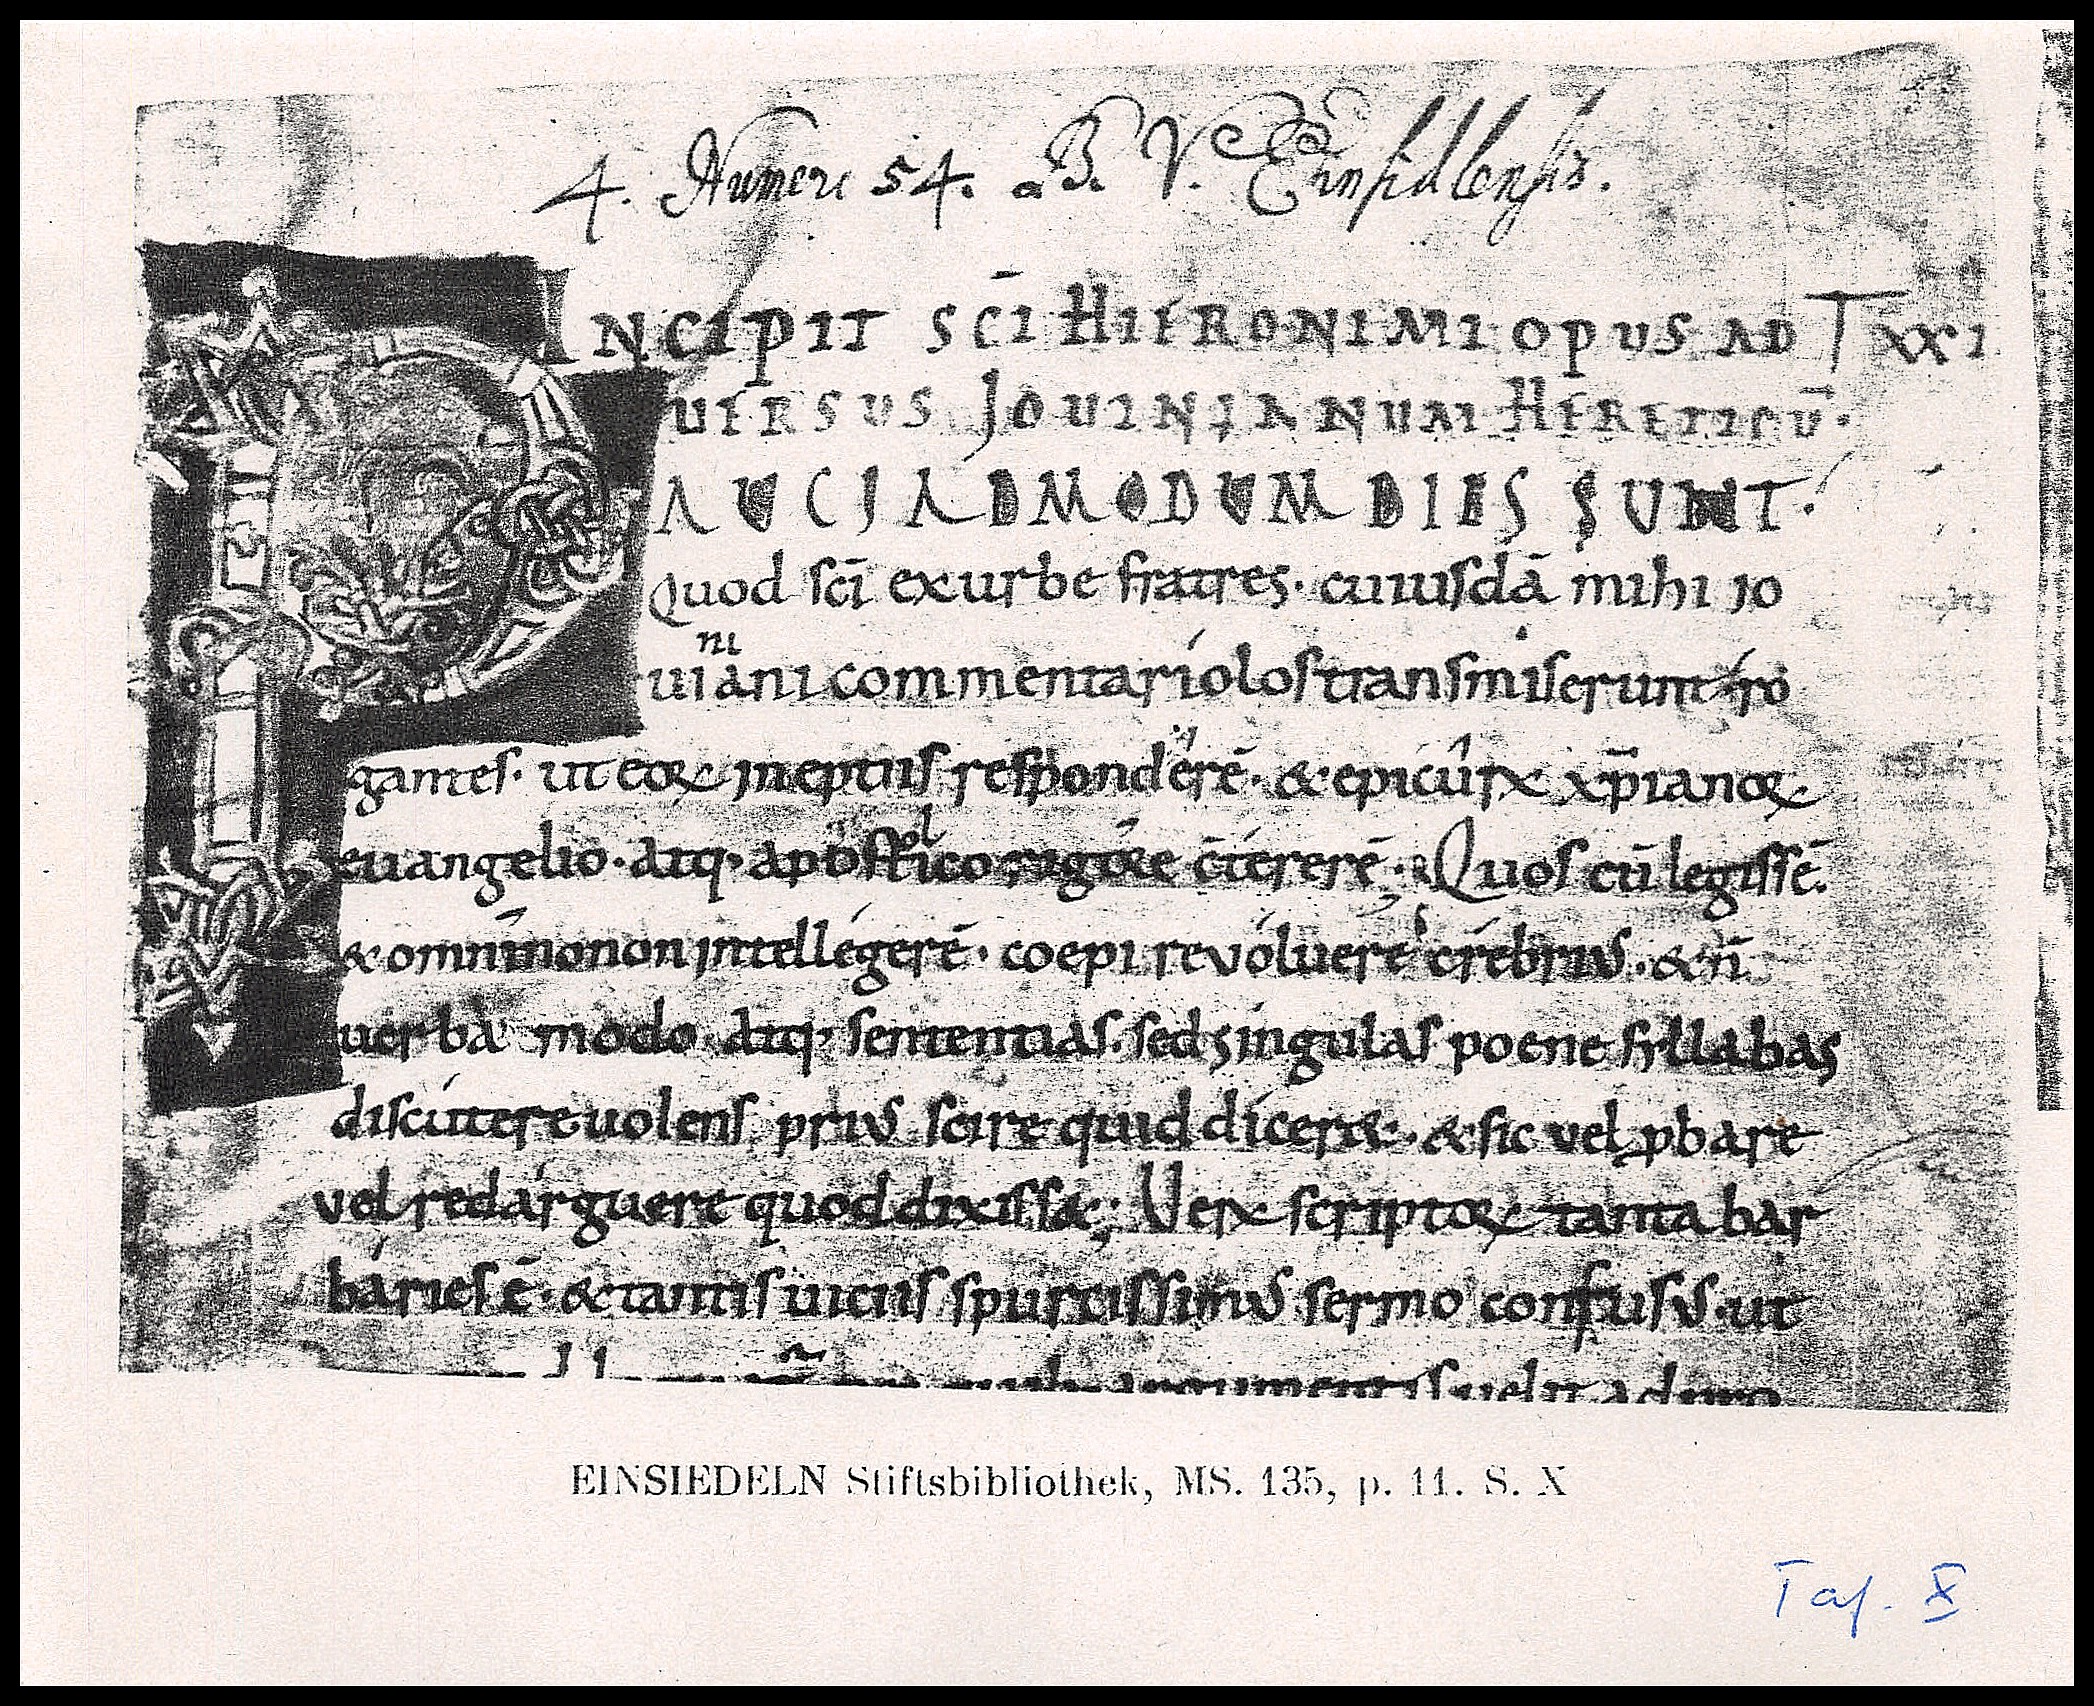 4. Numeri 54. B. V. Einsidlensis.
INCIPIT SC̄I HIERONIMI OPUS AD T XXI
UERSUS JOUINIANUM HERETICŪ.
PAUCI ADMODUM DIES SUNT.
Quod sc̄i ex urbe fratres. cuiusdā mihi io
ni
uiani commentariolos transmiserunt. ro
gantes. ut eoꝝ ineptiis respondererē. & epicurꝝ xp̄ianoꝝ
euangelio. atq. apostłico c̄tererē. Quos cū legissē.
& omnīno non intellegerē. coepi revoluere crebrius. & n̄
uerba modo. atq. sententias. sed singulas poene syllabas
discutere uolens prius scire quid dicer&. & sic vel ꝓbare
vel redarguere quod dixiss&; Verꝝ scriptoꝝ tanta bar
baries ē. & tantis uiciis spurcissimus sermo confusus. ut
argumentis uelit
EINSIEDELN Stiftsbibliothek, MS. 135, p. 11. S. X
Taf. X